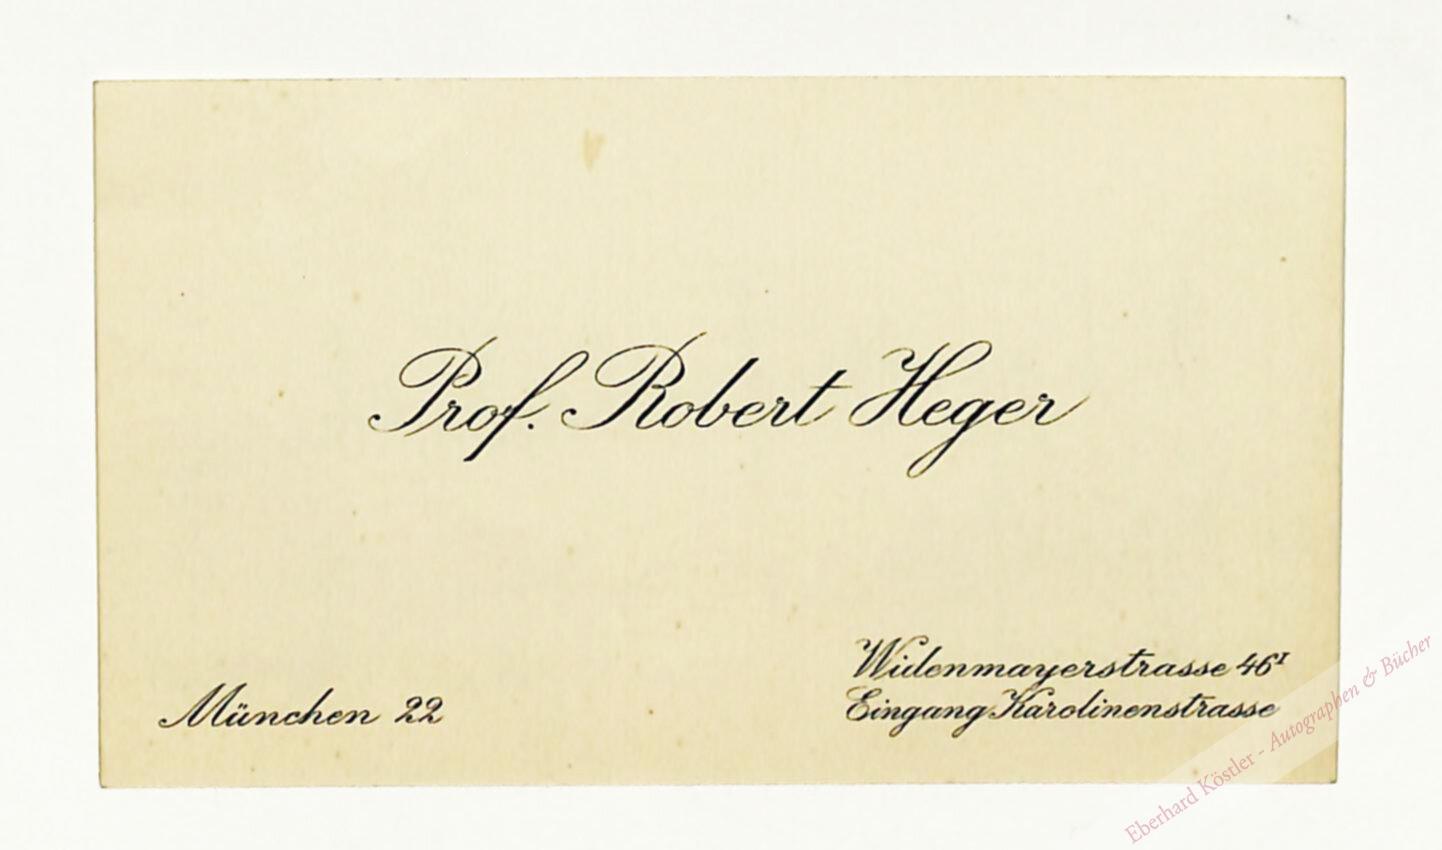 Prof. Robert Heger
München 22
Widenmayerstrasse 46ᴵ
Eingang Karolinenstrasse
Eberhard Köstler - Autographen & Bücher